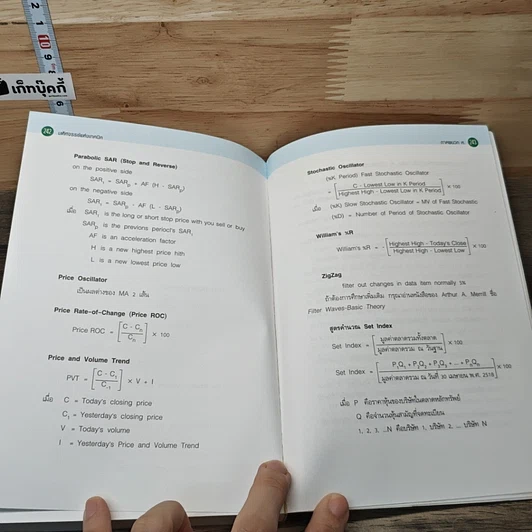 2
1
10
9
8
6
เก็ทบุ๊คกี้
242
มหัศจรรย์แห่งเทคนิค
Parabolic SAR (Stop and Reverse)
on the positive side
SAR = SAR + AF (H - SAR)
on the negative side
SAR = SAR - AF (L - SAR)
เมื่อ SAR is the long or short stop price with you sell or buy
SAR is the previons period's SAR
AF is an acceleration factor
H is a new highest price hith
L is a new lowest price low
Price Oscillator
เป็นผลต่างของ MA 2 เส้น
Price Rate-of-Change (Price ROC)
Price ROC = [ C - Cn / Cn ] × 100
Price and Volume Trend
PVT = [ C - C1 / C-1 ] × V + I
เมื่อ C = Today's closing price
C1 = Yesterday's closing price
V = Today's volume
I = Yesterday's Price and Volume Trend
ภาคผนวก ค
243
Stochastic Oscillator
(%K Period) Fast Stochastic Oscillator
= [ C - Lowest Low in K Period / Highest High - Lowest Low in K Period ] × 100
เมื่อ (%K) Slow Stochastic Oscillator = MV of Fast Stochastic
(%D) = Number of Period of Stochastic Oscillator
William's %R
William's %R = - [ Highest High - Today's Close / Highest High - Lowest Low ] × 100
ZigZag
filter out changes in data item normally วย
ถ้าต้องการศึกษาเพิ่มเติม กรุณาอ่านหนังสือของ Arthur A. Merrill ชื่อ
Filter Waves-Basic Theory
สูตรคำนวณ Set Index
Set Index = [ มูลค่าตลาดรวมทั้งตลาด / มูลค่าตลาดรวม ณ วันฐาน ] × 100
Set Index = [ P1Q1 + P2Q2 + P3Q3 + ... + PNQN / มูลค่าตลาดรวม ณ วันที่ 30 เมษายน พ.ศ. 2518 ] × 100
เมื่อ P คือราคาหุ้นของบริษัทในตลาดหลักทรัพย์
Q คือจำนวนหุ้นสามัญที่จดทะเบียน
1, 2, 3, ...N คือบริษัท 1, บริษัท 2, ... บริษัท N